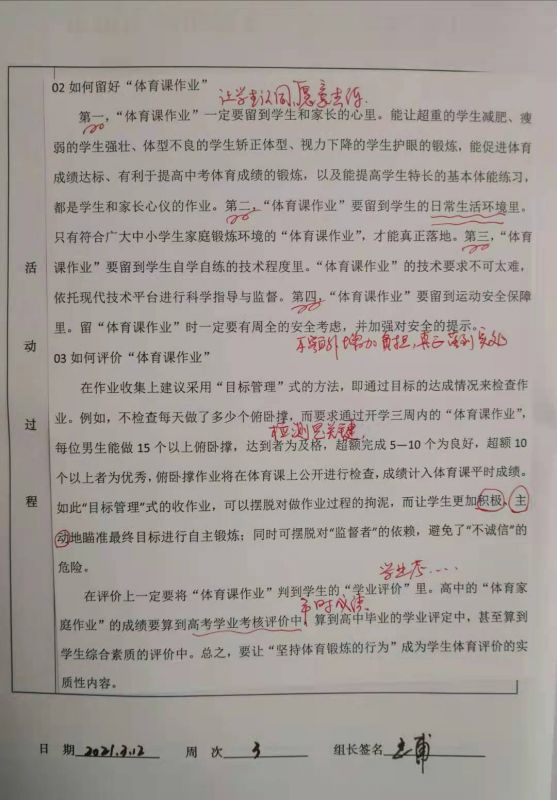 02 如何留好“体育课作业”
让学生认同,愿意去练.
第一，“体育课作业”一定要留到学生和家长的心里。能让超重的学生减肥、瘦
弱的学生强壮、体型不良的学生矫正体型、视力下降的学生护眼的锻炼，能促进体育
成绩达标、有利于提高中考体育成绩的锻炼，以及能提高学生特长的基本体能练习，
都是学生和家长心仪的作业。第二，“体育课作业”要留到学生的日常生活环境里。
只有符合广大中小学生家庭锻炼环境的“体育课作业”，才能真正落地。第三，“体育
课作业”要留到学生自学自练的技术程度里。“体育课作业”的技术要求不可太难，
依托现代技术平台进行科学指导与监督。第四，“体育课作业”要留到运动安全保障
里。留“体育课作业”时一定要有周全的安全考虑，并加强对安全的提示。
不额外增加负担,真正落到实处
03 如何评价“体育课作业”
在作业收集上建议采用“目标管理”式的方法，即通过目标的达成情况来检查作
业。例如，不检查每天做了多少个俯卧撑，而要求通过开学三周内的“体育课作业”，
检测是关键
每位男生能做 15 个以上俯卧撑，达到者为及格，超额完成 5—10 个为良好，超额 10
个以上者为优秀，俯卧撑作业将在体育课上公开进行检查，成绩计入体育课平时成绩。
如此“目标管理”式的收作业，可以摆脱对做作业过程的拘泥，而让学生更加积极、主
动地瞄准最终目标进行自主锻炼；同时可摆脱对“监督者”的依赖，避免了“不诚信”的
危险。
学生考……
在评价上一定要将“体育课作业”判到学生的“学业评价”里。高中的“体育家
平时成绩
庭作业”的成绩要算到高考学业考核评价中，算到高中毕业的学业评定中，甚至算到
学生综合素质的评价中。总之，要让“坚持体育锻炼的行为”成为学生体育评价的实
质性内容。
活动过程
日 期 2021.3.12 周 次 3 组长签名